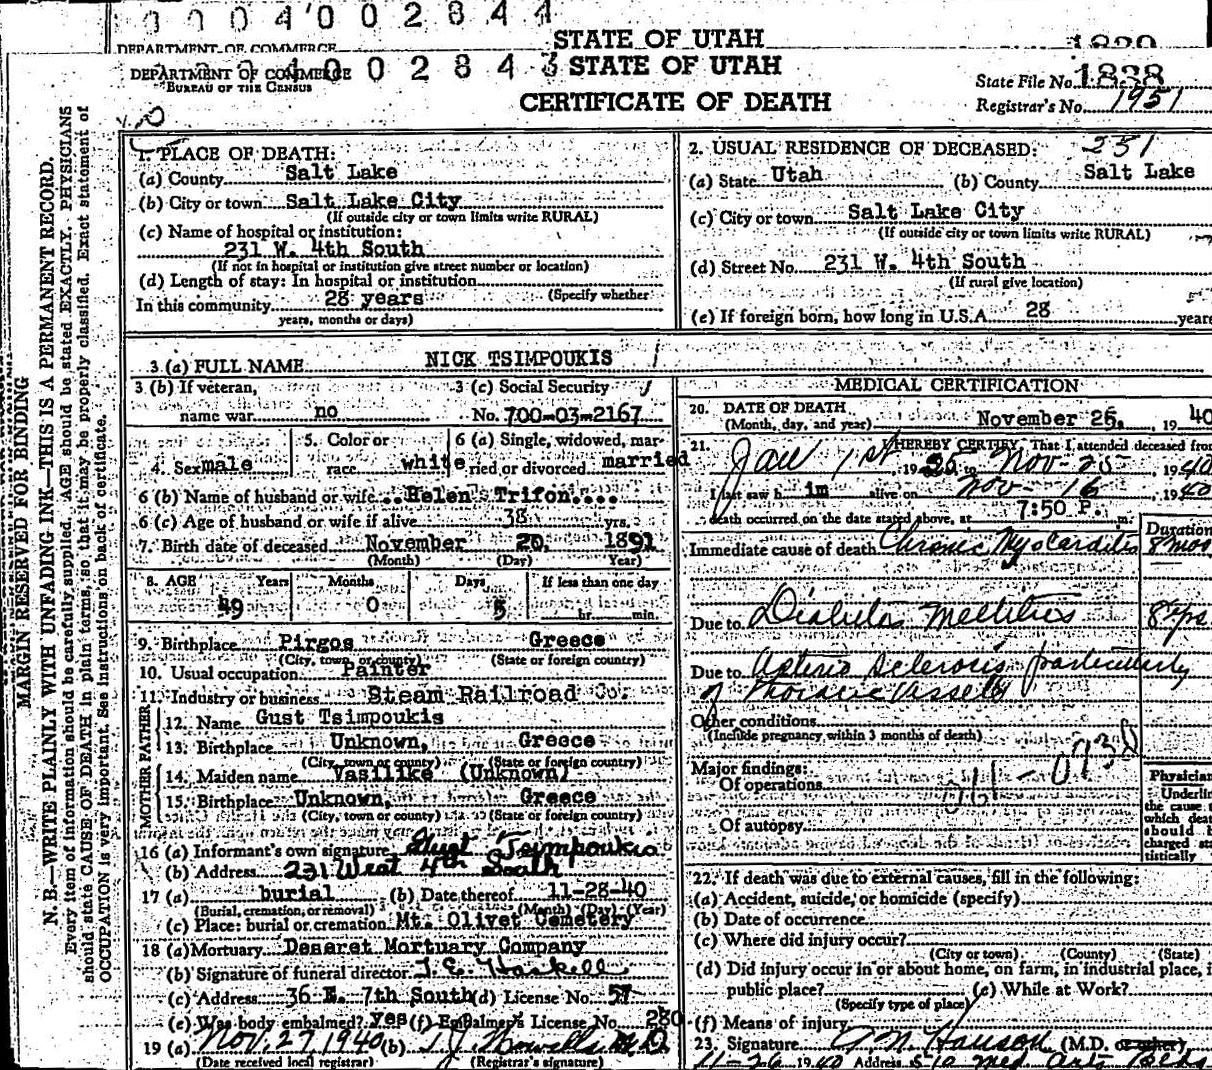 0 0 0 4 0 0 2 8 4 4
DEPARTMENT OF COMMERCE
STATE OF UTAH
1839
DEPARTMENT OF COMMERCE
BUREAU OF THE CENSUS
0 4 0 0 2 8 4 3
STATE OF UTAH
CERTIFICATE OF DEATH
State File No. 1838
Registrar's No. 1951
MARGIN RESERVED FOR BINDING
N. B.—WRITE PLAINLY WITH UNFADING INK—THIS IS A PERMANENT RECORD.
Every item of information should be carefully supplied. AGE should be stated EXACTLY. PHYSICIANS
should state CAUSE OF DEATH in plain terms, so that it may be properly classified. Exact statement of
OCCUPATION is very important. See instructions on back of certificate.
1. PLACE OF DEATH:
(a) County Salt Lake
(b) City or town Salt Lake City
(If outside city or town limits write RURAL)
(c) Name of hospital or institution:
231 W. 4th South
(If not in hospital or institution give street number or location)
(d) Length of stay: In hospital or institution
(Specify whether
In this community 28 years
years, months or days)
2. USUAL RESIDENCE OF DECEASED: 251
(a) State Utah (b) County Salt Lake
(c) City or town Salt Lake City
(If outside city or town limits write RURAL)
(d) Street No. 231 W. 4th South
(If rural give location)
(e) If foreign born, how long in U.S.A. 28 years
3 (a) FULL NAME NICK TSIMPOUKIS
3 (b) If veteran, name war no
3 (c) Social Security No. 700-03-2167
4. Sex male
5. Color or race white
6 (a) Single, widowed, married or divorced married
6 (b) Name of husband or wife Helen Trifon
6 (c) Age of husband or wife if alive 38 yrs.
7. Birth date of deceased November 20, 1891
(Month) (Day) (Year)
8. AGE Years Months Days If less than one day
49 0 5 hr. min.
9. Birthplace Pirgos Greece
(City, town, or county) (State or foreign country)
10. Usual occupation Painter
11. Industry or business Steam Railroad Co.
FATHER
12. Name Gust Tsimpoukis
13. Birthplace Unknown, Greece
(City, town or county) (State or foreign country)
MOTHER
14. Maiden name Vasilike (Unknown)
15. Birthplace Unknown, Greece
(City, town or county) (State or foreign country)
16 (a) Informant's own signature Gust Tsimpoukis
(b) Address 231 West 4th South
17 (a) burial (b) Date thereof 11-28-40
(Burial, cremation, or removal) (Month) (Day) (Year)
(c) Place: burial or cremation Mt. Olivet Cemetery
18 (a) Mortuary Deseret Mortuary Company
(b) Signature of funeral director J. E. Haskell
(c) Address 36 E. 7th South (d) License No. 57
(e) Was body embalmed? yes (f) Embalmer's License No. 280
19 (a) Nov. 27, 1940 (b) T. J. Howells M.D.
(Date received local registrar) (Registrar's signature)
MEDICAL CERTIFICATION
20. DATE OF DEATH November 25, 1940
(Month, day, and year)
21. I HEREBY CERTIFY, That I attended deceased from
Jan 1st 19 to Nov-25 1940
I last saw him alive on Nov-16, 1940
death occurred on the date stated above, at 7:50 P. m.
Duration
Immediate cause of death Chronic Myocarditis 8 mos.
Due to Diabetes Mellitus 8 yrs.
Due to Arterio Sclerosis, particularly
of thoracic vessels
Other conditions
(Include pregnancy within 3 months of death)
Major findings:
Of operations
061-093
Of autopsy
Physician
Underlin
the cause t
which deat
should b
charged sta
tistically
22. If death was due to external causes, fill in the following:
(a) Accident, suicide, or homicide (specify)
(b) Date of occurrence
(c) Where did injury occur?
(City or town) (County) (State)
(d) Did injury occur in or about home, on farm, in industrial place, i
public place? (e) While at Work?
(Specify type of place)
(f) Means of injury
23. Signature M. Hanson (M.D. or other)
11-26 1940 Address 510 Med Arts